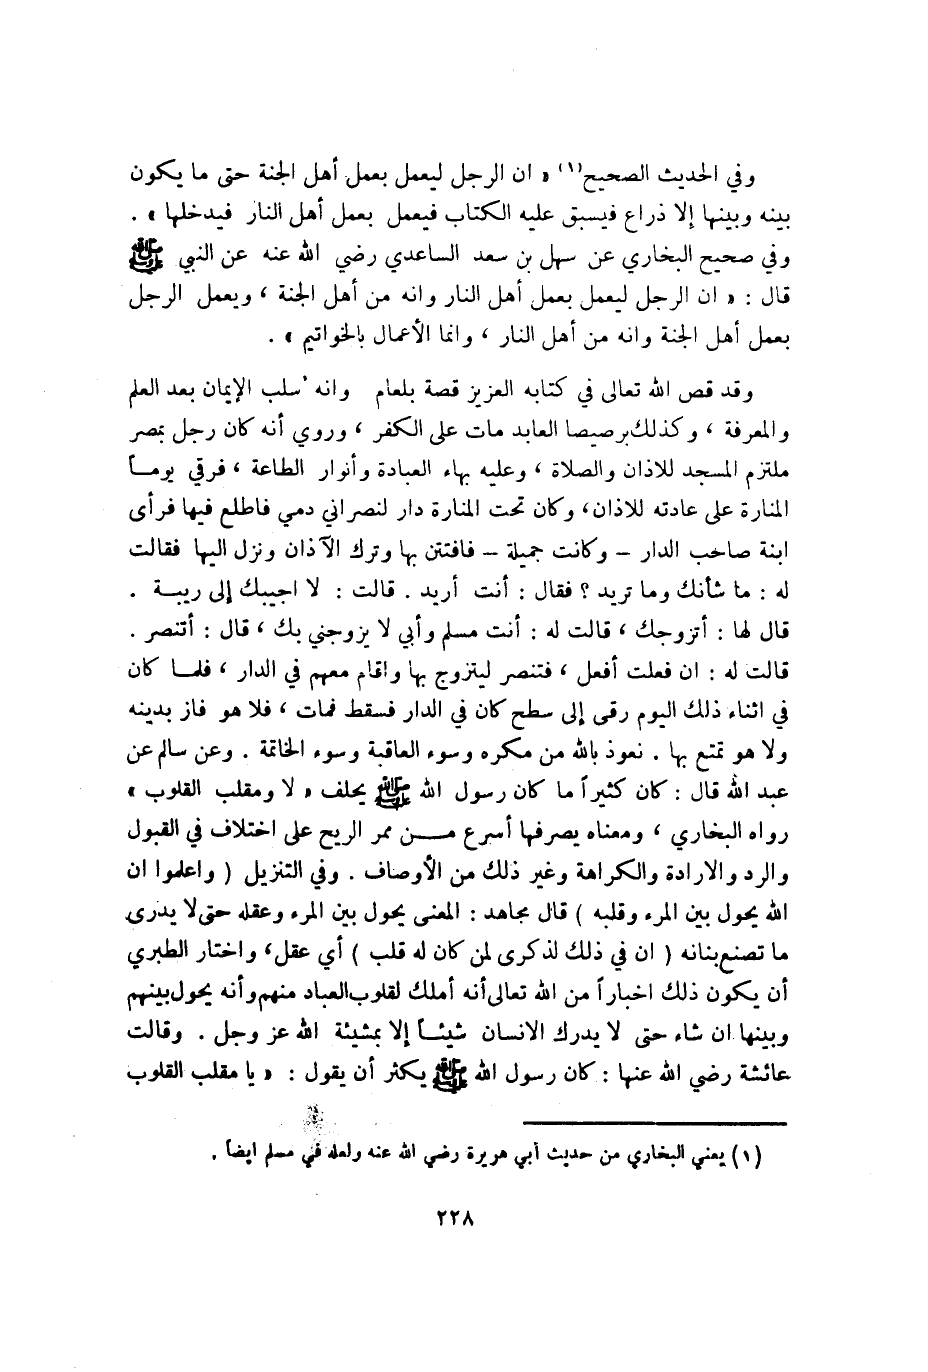 وفي الحديث الصحيح(١) « ان الرجل ليعمل بعمل أهل الجنة حتى ما يكون
بينه وبينها إلا ذراع فيسبق عليه الكتاب فيعمل بعمل أهل النار فيدخلها » .
وفي صحيح البخاري عن سهل بن سعد الساعدي رضي الله عنه عن النبي ﷺ
قال : « ان الرجل ليعمل بعمل أهل النار وانه من أهل الجنة ، ويعمل الرجل
بعمل أهل الجنة وانه من أهل النار ، وانما الأعمال بالخواتيم » .
وقد قص الله تعالى في كتابه العزيز قصة بلعام وانه ُسلب الإيمان بعد العلم
والمعرفة ، وكذلك برصيصا العابد مات على الكفر ، وروي أنه كان رجل بمصر
ملتزم المسجد للاذان والصلاة ، وعليه بهاء العبادة وأنوار الطاعة ، فرقي يومـاً
المنارة على عادته للاذان، وكان تحت المنارة دار لنصراني ذمي فاطلع فيها فرأى
ابنة صاحب الدار – وكانت جميلة – فافتتن بها وترك الآذان ونزل اليها فقالت
له : ما شأنك وما تريد ؟ فقال : أنت أريد . قالت : لا اجيبك إلى ريبـة .
قال لها : أتزوجك ، قالت له : أنت مسلم وأبي لا يزوجني بك ، قال : أتنصر .
قالت له : ان فعلت أفعل ، فتنصر ليتزوج بها واقام معهم في الدار ، فلمـا كان
في اثناء ذلك اليوم رقى إلى سطح كان في الدار فسقط فمات ، فلا هو فاز بدينه
ولا هو تمتع بها . نعوذ بالله من مكره وسوء العاقبة وسوء الخاتمة . وعن سالم عن
عبد الله قال : كان كثيراً ما كان رسول الله ﷺ يحلف « لا ومقلب القلوب »
رواه البخاري ، ومعناه يصرفها أسرع مـن ممر الريح على اختلاف في القبول
والرد والارادة والكراهة وغير ذلك من الأوصاف . وفي التنزيل ( واعلموا ان
الله يحول بين المرء وقلبه ) قال مجاهد : المعنى يحول بين المرء وعقله حتى لا يدري
ما تصنع بنانه ( ان في ذلك لذكرى لمن كان له قلب ) أي عقل، واختار الطبري
أن يكون ذلك اخباراً من الله تعالى أنه أملك لقلوب العباد منهم وأنه يحول بينهم
وبينها ان شاء حتى لا يدرك الانسان شيئـاً إلا بمشيئة الله عز وجل . وقالت
عائشة رضي الله عنها : كان رسول الله ﷺ يكثر أن يقول : « يا مقلب القلوب
(١) يعني البخاري من حديث أبي هريرة رضي الله عنه ولعله في مسلم ايضاً .
٢٢٨